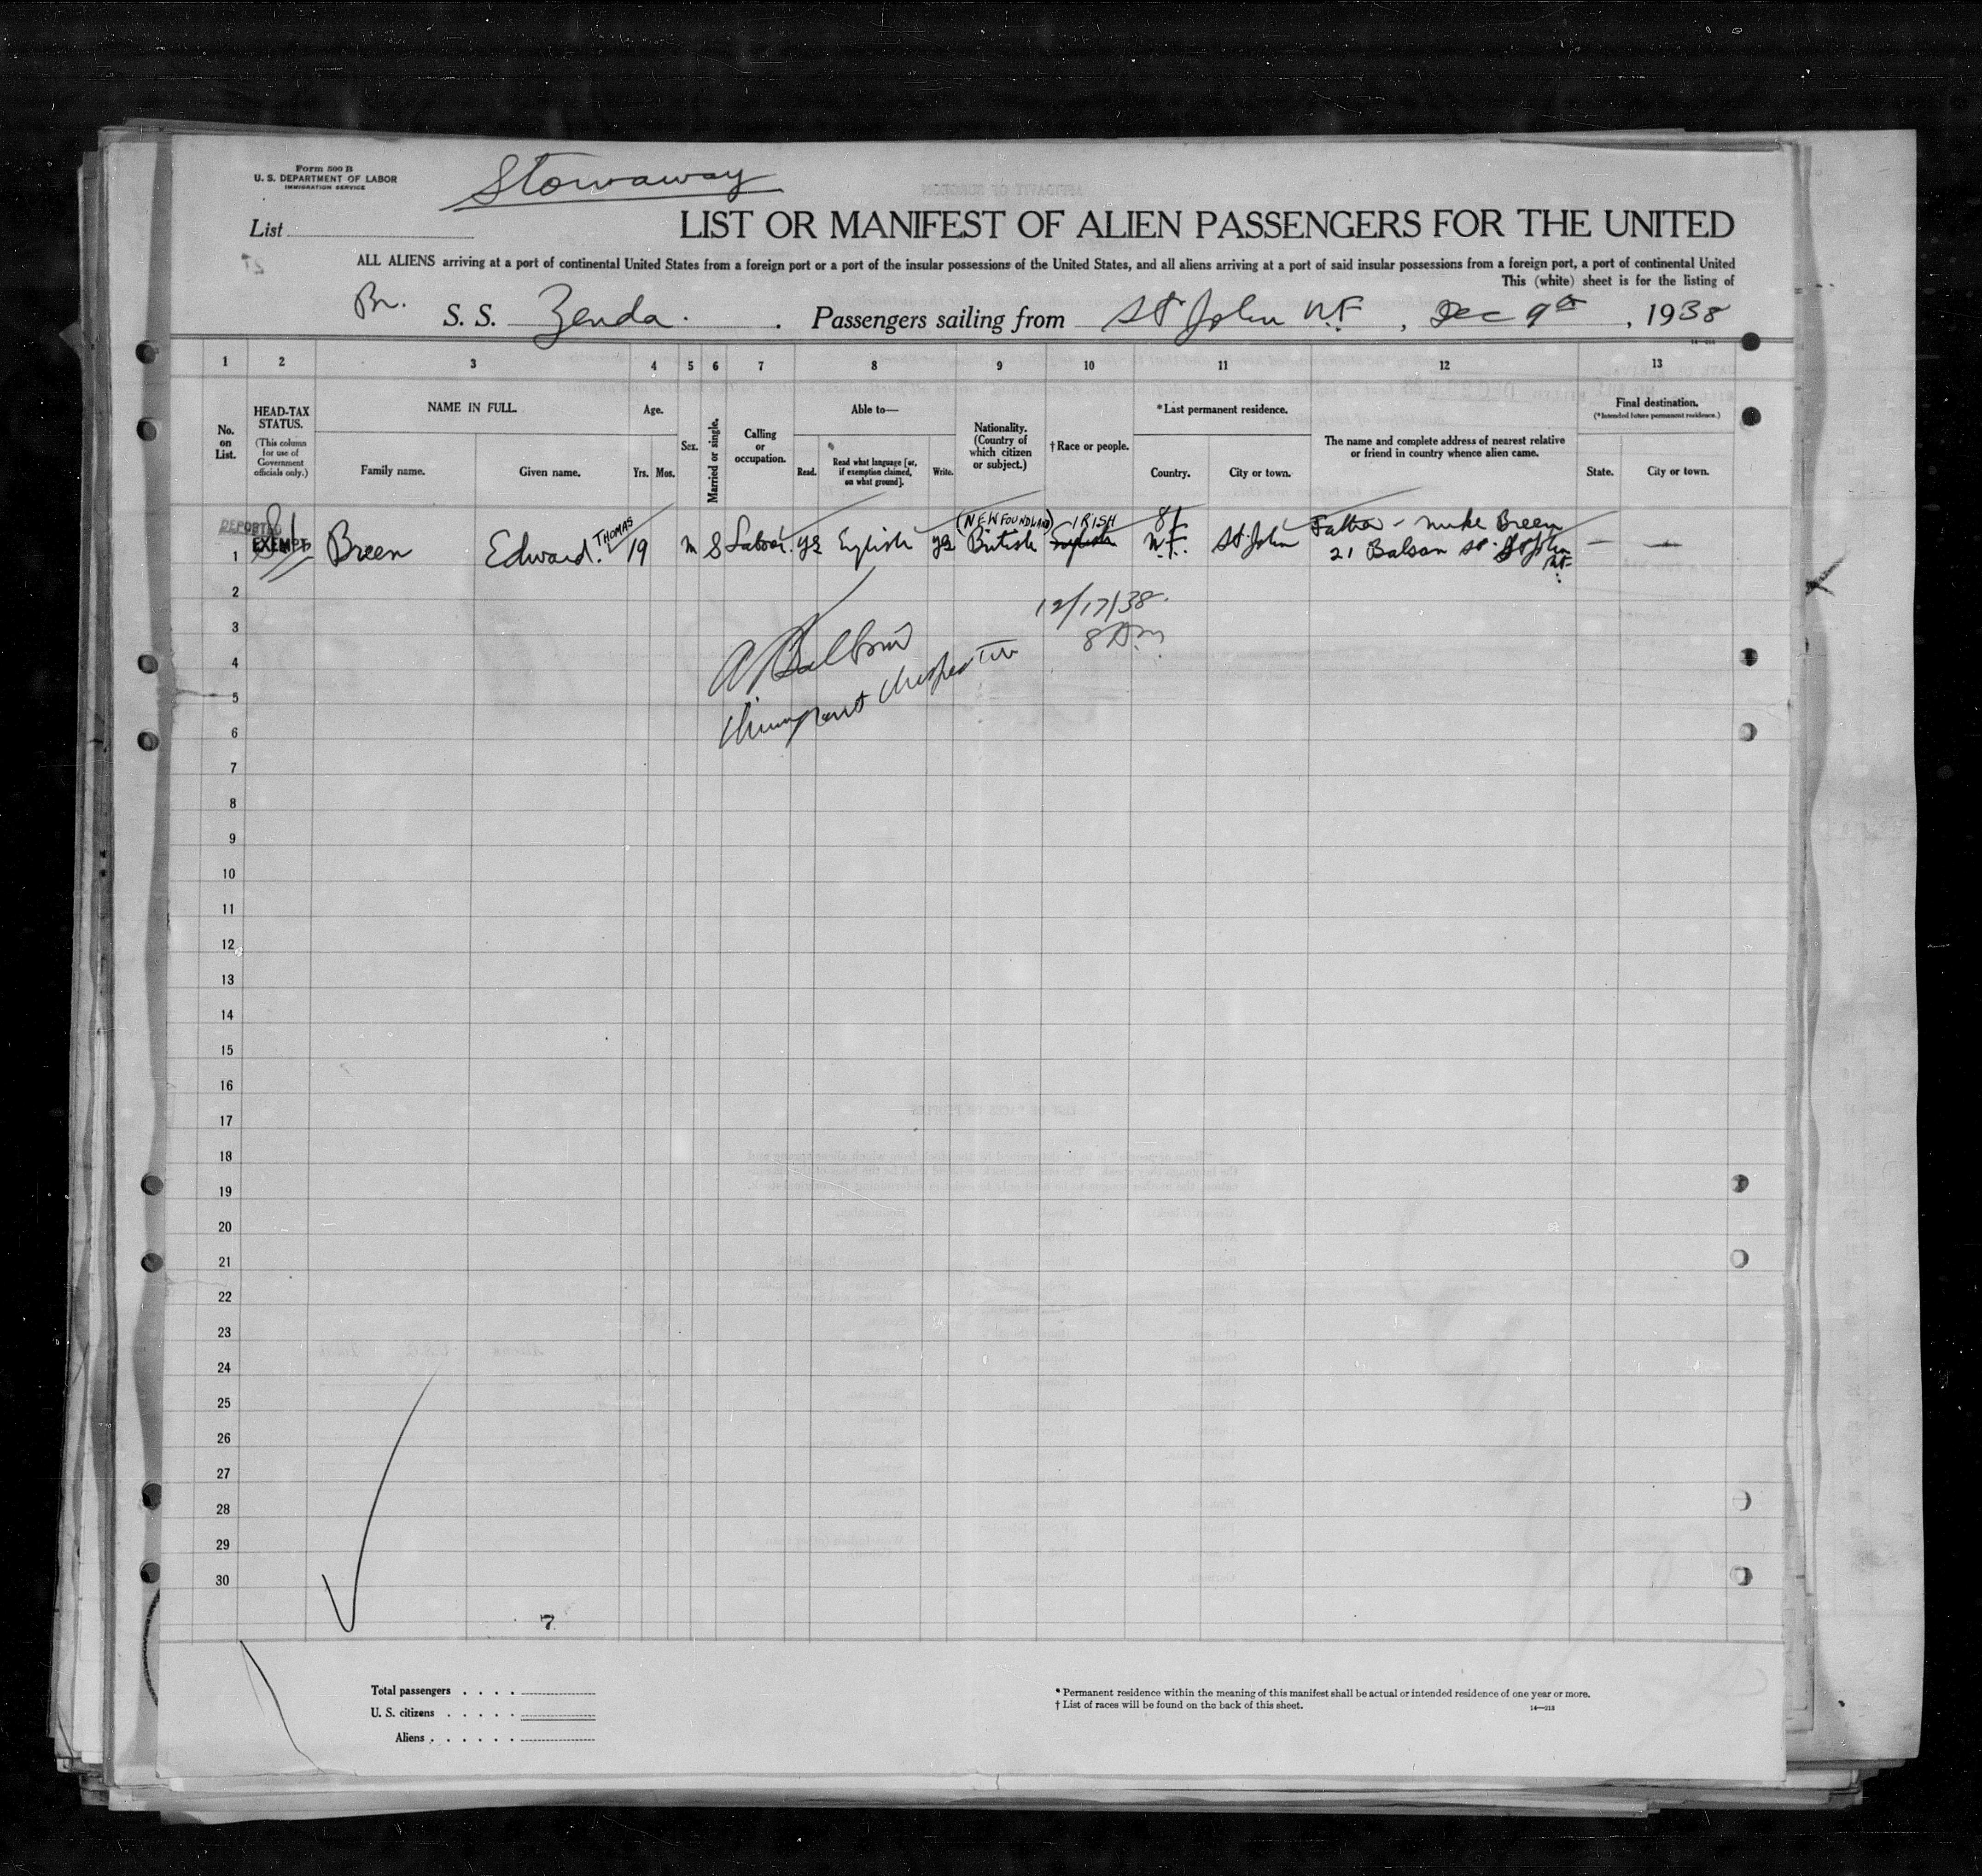 Form 500 B
U. S. DEPARTMENT OF LABOR
IMMIGRATION SERVICE
Stowaway
List
LIST OR MANIFEST OF ALIEN PASSENGERS FOR THE UNITED
ALL ALIENS arriving at a port of continental United States from a foreign port or a port of the insular possessions of the United States, and all aliens arriving at a port of said insular possessions from a foreign port, a port of continental United
This (white) sheet is for the listing of
Br. S. S. Zenda. Passengers sailing from St John N.F., Dec 9th, 1938
14—213
1 2 3 4 5 6 7 8 9 10 11 12 13
No. on List.
HEAD-TAX STATUS.
(This column for use of Government officials only.)
NAME IN FULL.
Family name. Given name.
Age.
Yrs. Mos.
Sex.
Married or single.
Calling or occupation.
Able to—
Read. Read what language [or, if exemption claimed, on what ground]. Write.
Nationality. (Country of which citizen or subject.)
†Race or people.
*Last permanent residence.
Country. City or town.
The name and complete address of nearest relative or friend in country whence alien came.
Final destination.
(*Intended future permanent residence.)
State. City or town.
DEPORTED
EXEMPT
1 Breen Edward. THOMAS 19 m S Labor. yes English yes (NEWFOUNDLAND) British IRISH English N.F. St John Father - Mike Breen
21 Balsam St. St John N.F. — —
2
12/17/38.
3
8 Am
4
5
Immigrant Inspector
6
7
8
9
10
11
12
13
14
15
16
17
18
19
20
21
22
23
24
25
26
27
28
29
30
7
Total passengers . . . .
U. S. citizens . . . . .
Aliens . . . . . .
* Permanent residence within the meaning of this manifest shall be actual or intended residence of one year or more.
† List of races will be found on the back of this sheet.
14—213